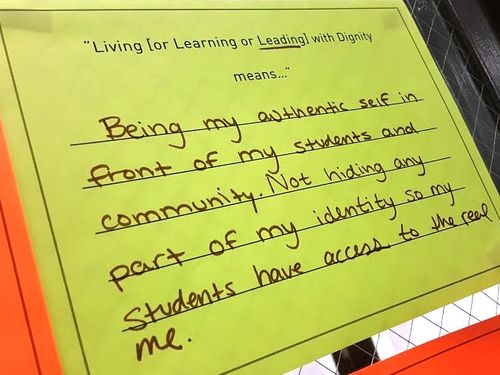 "Living [or Learning or Leading] with Dignity
means..."
Being my authentic self in
front of my students and
community. Not hiding any
part of my identity so my
students have access to the real
me.